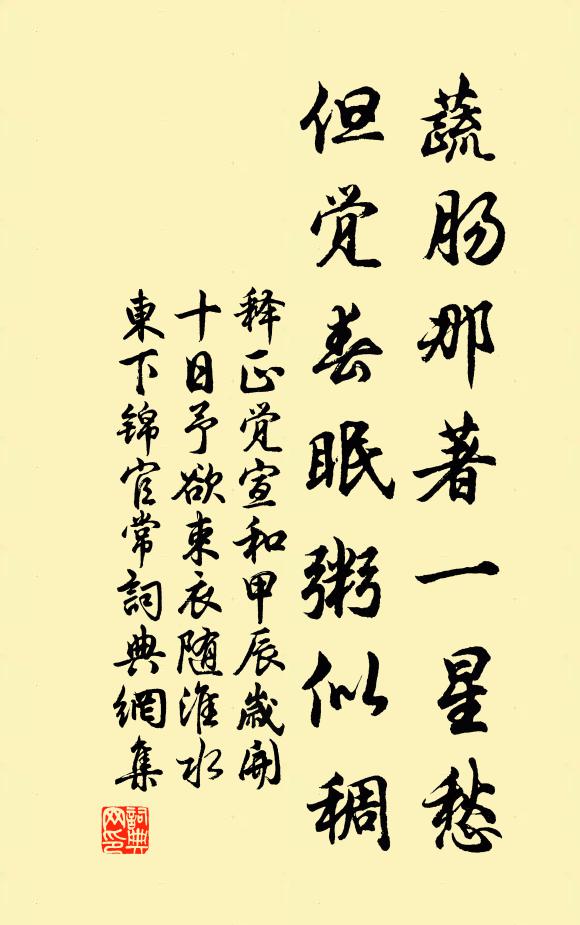 蔬肠那著一星愁
但觉春眠粥似稠
释正觉宣和甲辰岁开
十日予欲束衣随淮水
東下锦官常詞典網集
詞典网印